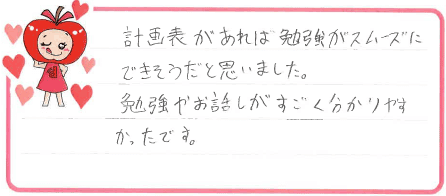 計画表があれば勉強がスムーズに
できそうだと思いました。
勉強やお話しがすごく分かりやす
かったです。